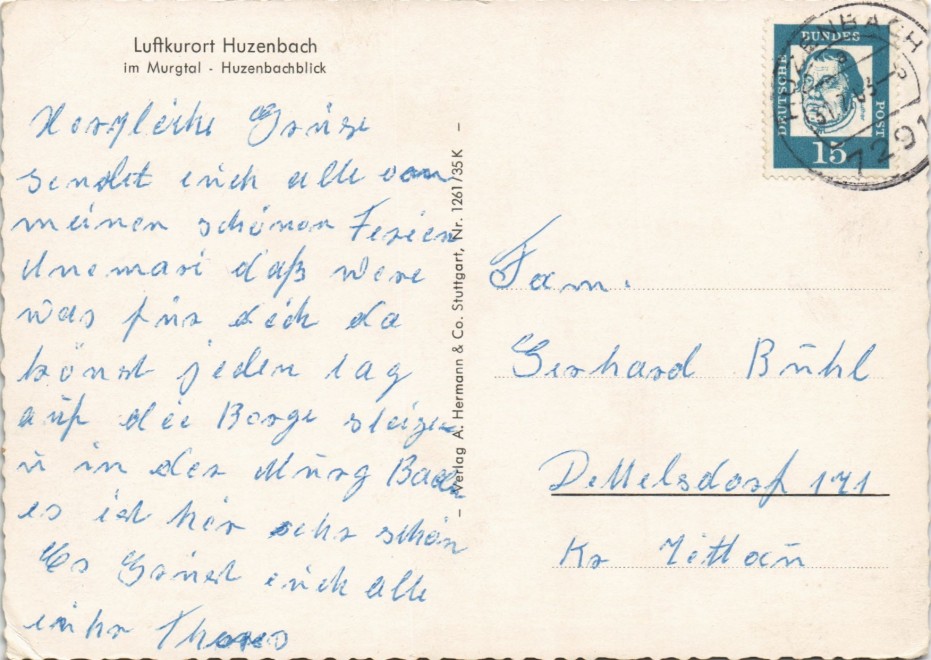 Luftkurort Huzenbach
im Murgtal - Huzenbachblick
Herzleiche Grüse
sendet euch alle von
meinen schönen Ferien
daß were
was für dich da
könst jeden tag
auf die Berge steigen
u in der Murg Baden
es ist hier sehr schön
Es Grüst euch alle
euhr
- Verlag A. Hermann & Co. Stuttgart, Nr. 1261/35 K -
DEUTSCHE
BUNDES
POST
15
HUZENBACH
31.7.63
7291
Fam.
Gerhard Bühl
Dettelsdorf 171
Kr Zittau